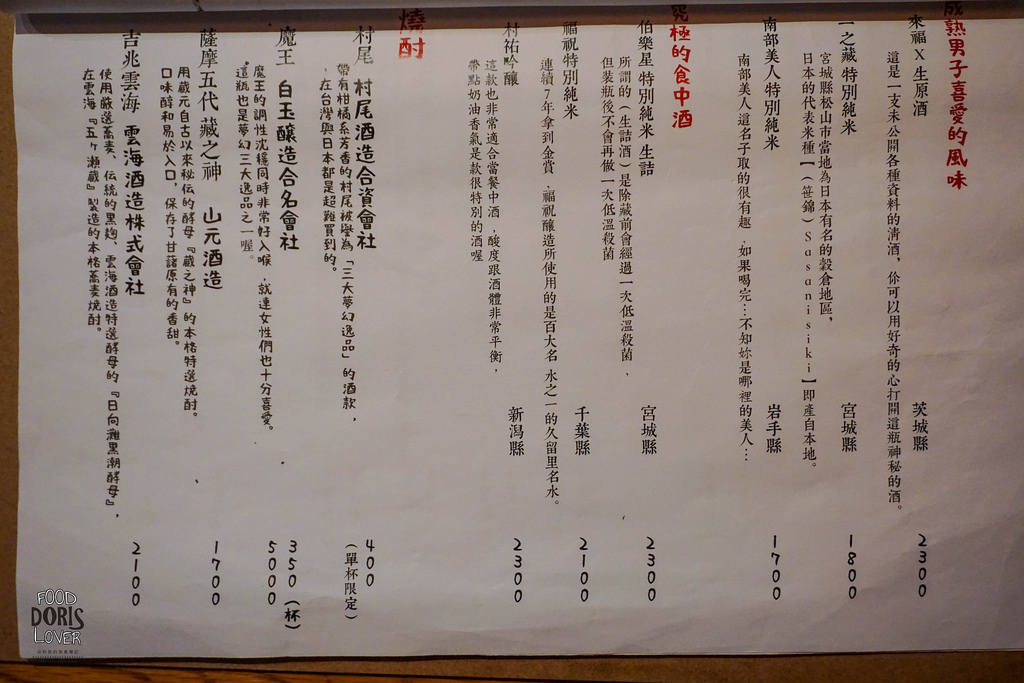 成熟男子喜愛的風味
來福X生原酒 茨城縣 2300
這是一支未公開各種資料的清酒，你可以用好奇的心打開這瓶神秘的酒。
一之藏 特別純米 宮城縣 1800
宮城縣松山市當地為日本有名的穀倉地區，
日本的代表米種【(笹錦) Sasanisiki】即產自本地。
南部美人特別純米 岩手縣 1700
南部美人這名子取的很有趣、如果喝完…不知妳是哪裡的美人…
究極的食中酒
伯樂星 特別純米 生詰 宮城縣 2300
所謂的(生詰酒)是除藏前會經過一次低溫殺菌、
但裝瓶後不會再做一次低溫殺菌
福祝特別純米 千葉縣 2100
連續7年拿到金賞、福祝釀造所使用的是百大名水之一的久留里名水。
村祐吟釀 新潟縣 2300
這款也非常適合當餐中酒，酸度跟酒體非常平衡，
帶點奶油香氣是款很特別的酒喔
燒酎
村尾 村尾酒造合資會社 400 (單杯限定)
帶有柑橘系芳香的村尾被譽為「三大夢幻逸品」的酒款，
在台灣與日本都是超難買到的。
魔王 白玉釀造合名會社 350 (杯) 5000
魔王的調性沈穩同時非常好入喉、就連女性們也十分喜愛。
這瓶也是夢幻三大逸品之一喔。
薩摩五代 藏之神 山元酒造 1700
用藏元自古以來秘伝的酵母『藏之神』的本格特選燒酎。
口味醇和易於入口，保存了甘藷原有的香甜。
吉兆雲海 雲海酒造株式會社 2100
使用嚴選蕎麦、伝統的黑麴、雲海酒造特選酵母的『日向灘黑潮酵母』，
在雲海『五ヶ瀨藏』製造的本格蕎麦燒酎。
FOOD
DORIS
LOVER